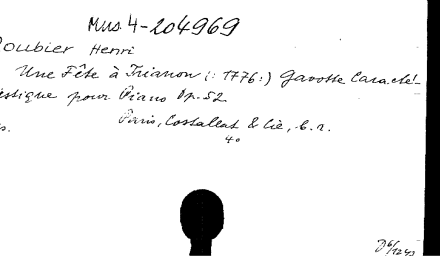 Mus. 4-204969
Roubier Henri
Une Fête à Trianon (: 1776 :) Gavotte Caracté-
ristique pour Piano Op. 52
Paris, Costallat & Cie, s. a.
4°